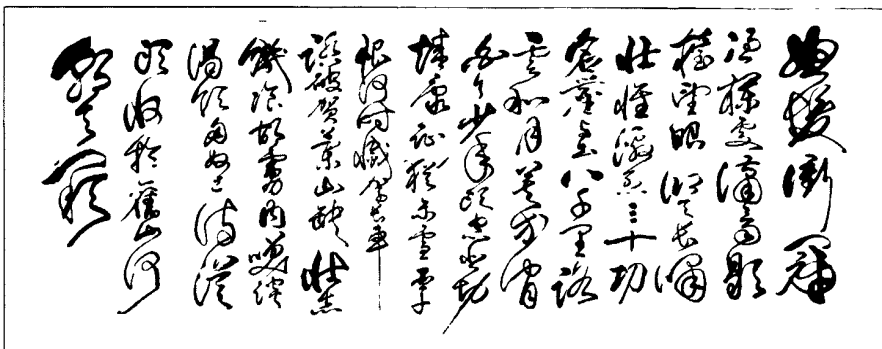 怒髮衝冠
憑欄處瀟瀟雨歇
抬望眼仰天長嘯
壯懷激烈三十功
名塵與土八千里路
雲和月莫等閒
白了少年頭空悲切
靖康恥猶未雪臣子
恨何時滅駕長車
踏破賀蘭山缺壯志
飢餐胡虜肉笑談
渴飲匈奴血待從
頭收拾舊山河
朝天闕